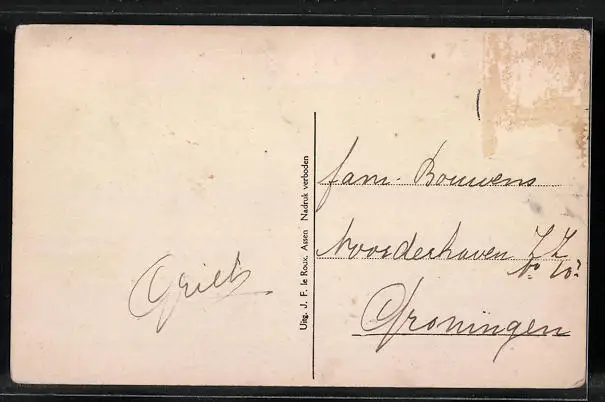 Griet
Uitg. J. F. le Roux, Assen Nadruk verboden
fam. Bouwens
Noorderhaven Z Z
No 10
Groningen